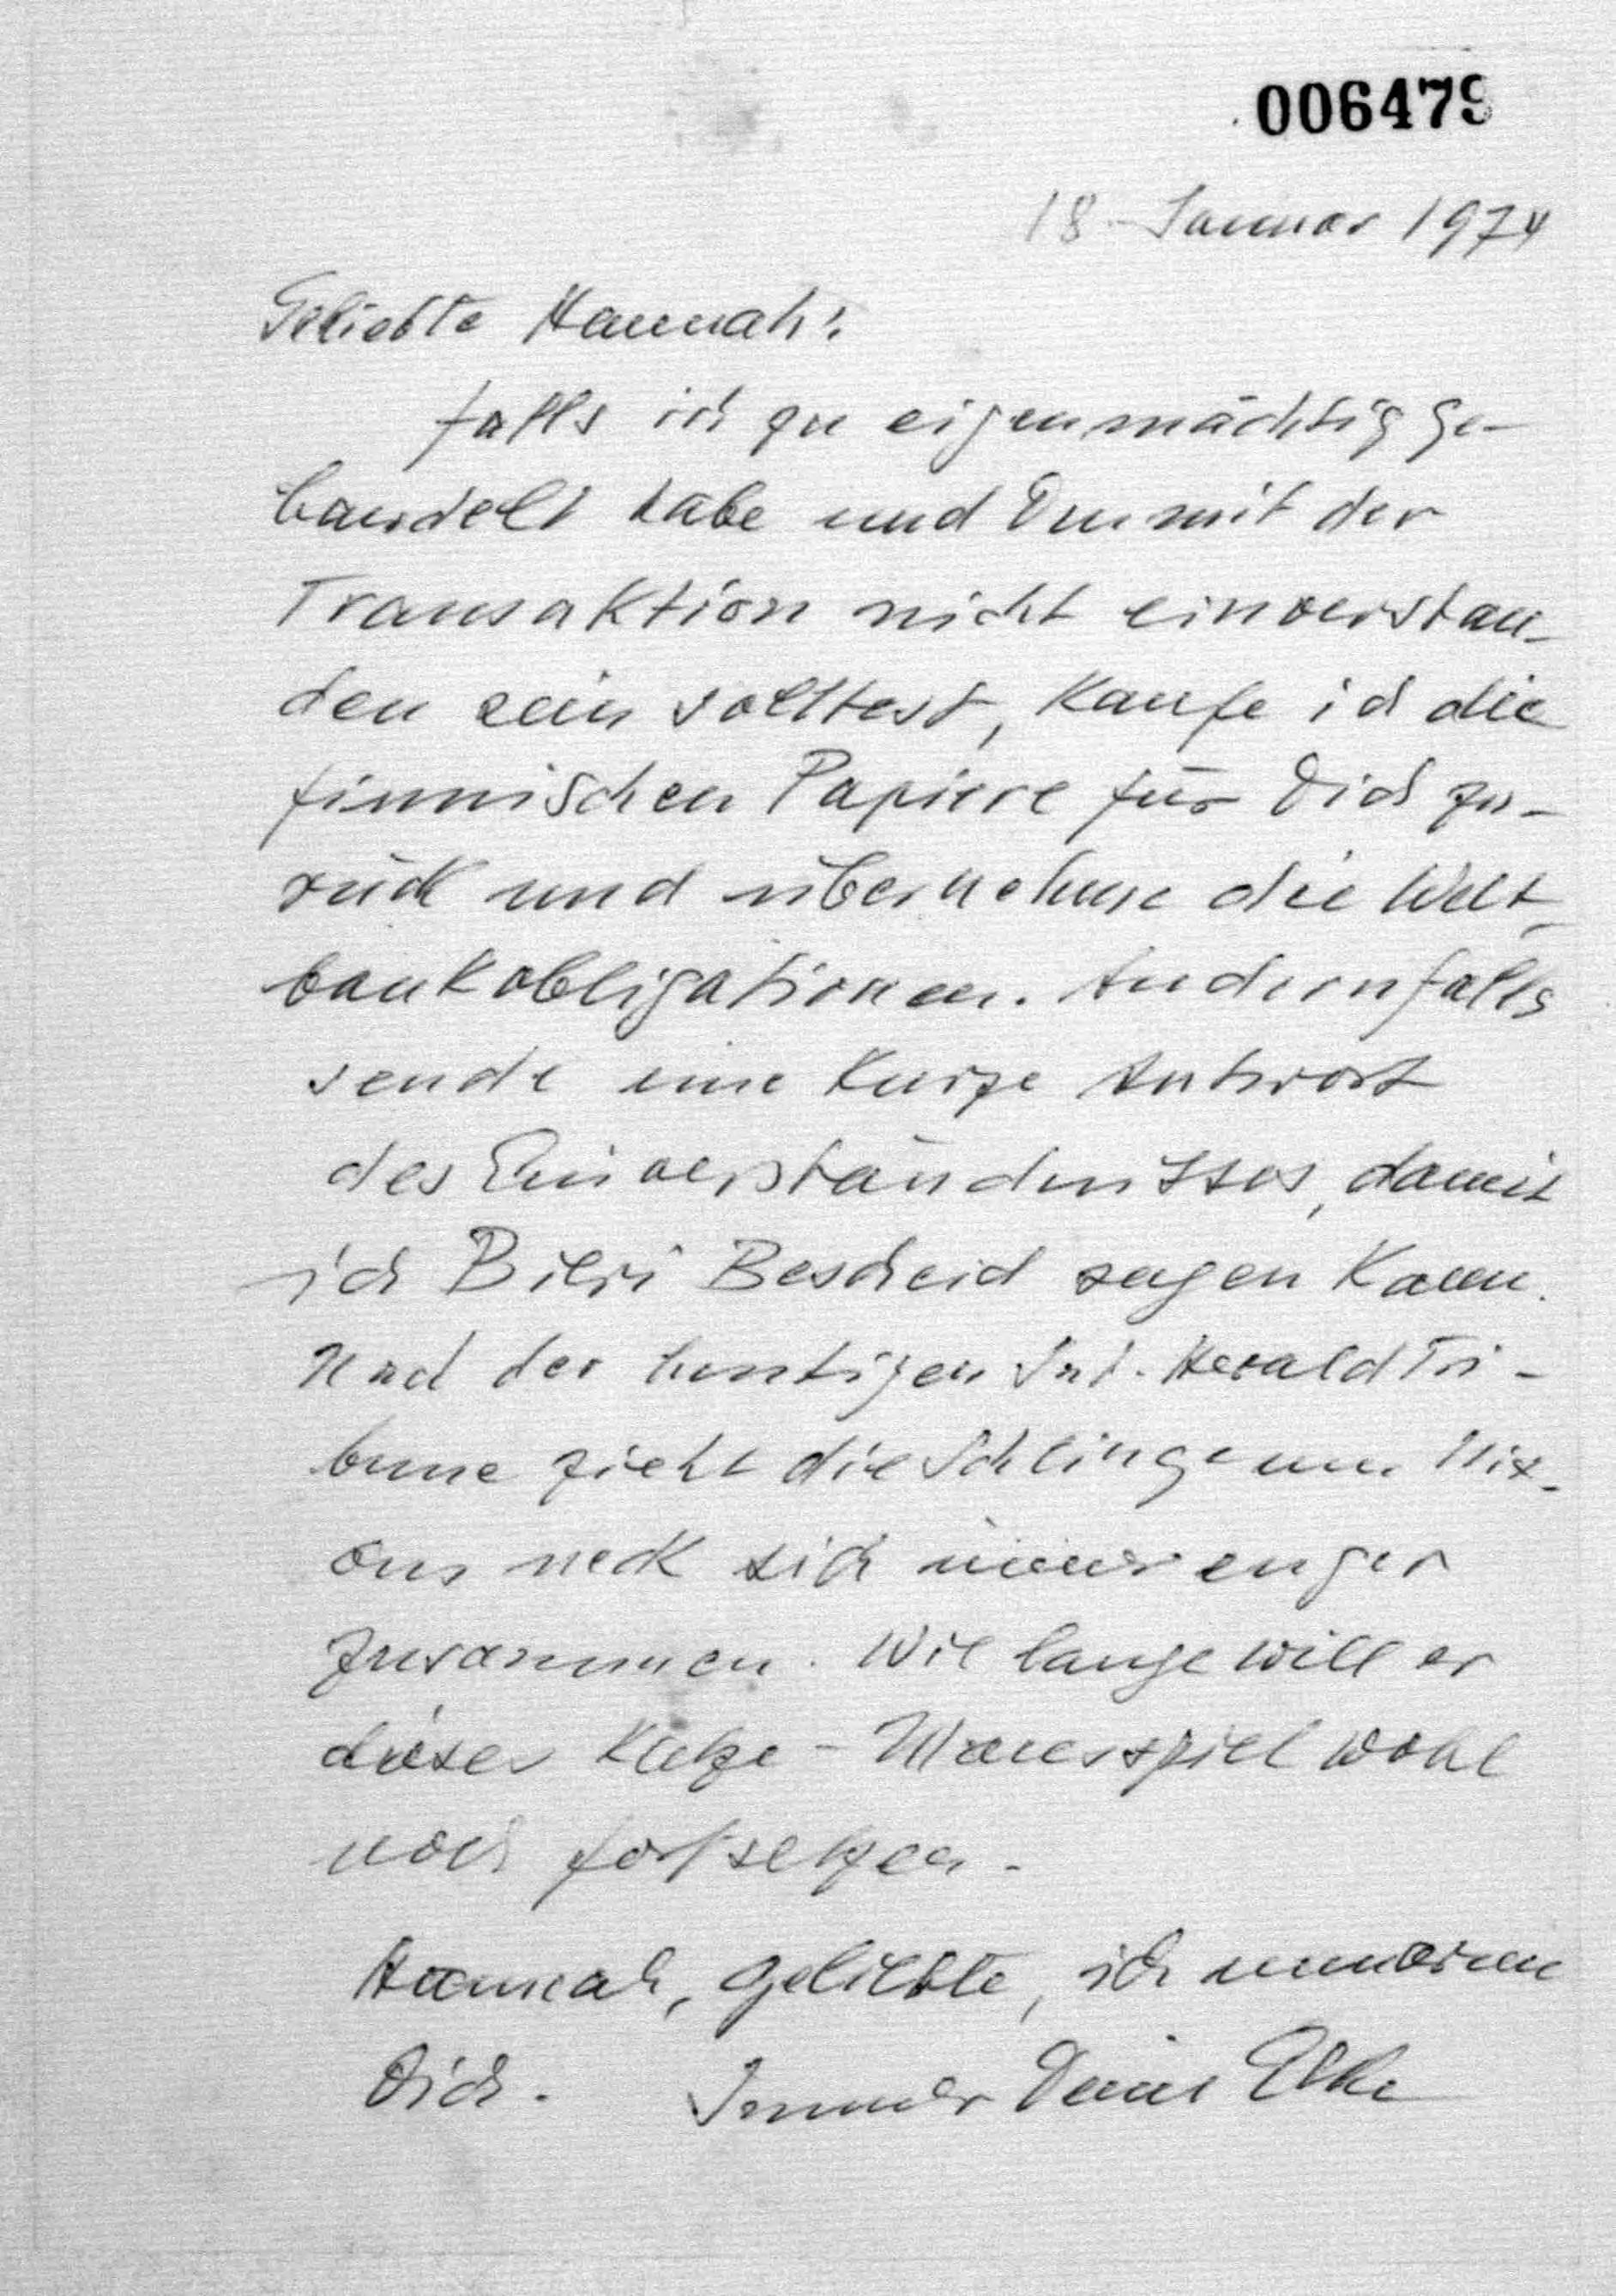 006479
18. Januar 1974
Geliebte Hannah:
falls ich zu eigenmächtig ge-
handelt habe und Du mit der
Transaktion nicht einverstan-
den sein solltest, kaufe ich die
finnischen Papiere für Dich zu-
rück und übernehme die Welt-
bankobligationen. Andernfalls
sende eine kurze Antwort
des Einverständnisses, damit
ich Bescheid sagen kann.
Nach der heutigen Int. Herald Tri-
bune zieht die Schlinge um Nix-
ons neck sich immer enger
zusammen. Wie lange will er
dieses Katze-Mausspiel wohl
noch fortsetzen.
Hannah, Geliebte, ich umarme
Dich. Immer Deine Elke